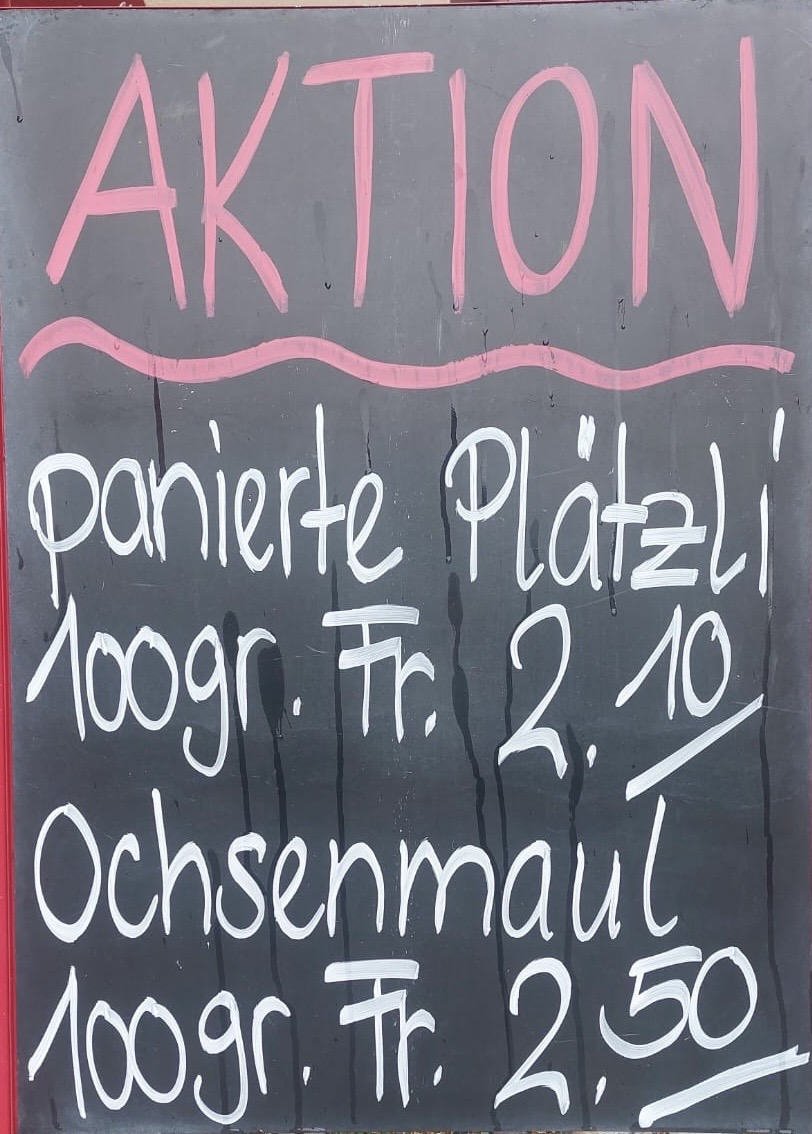 AKTION
panierte Plätzli
100gr. Fr. 2.10
Ochsenmaul
100gr. Fr. 2.50